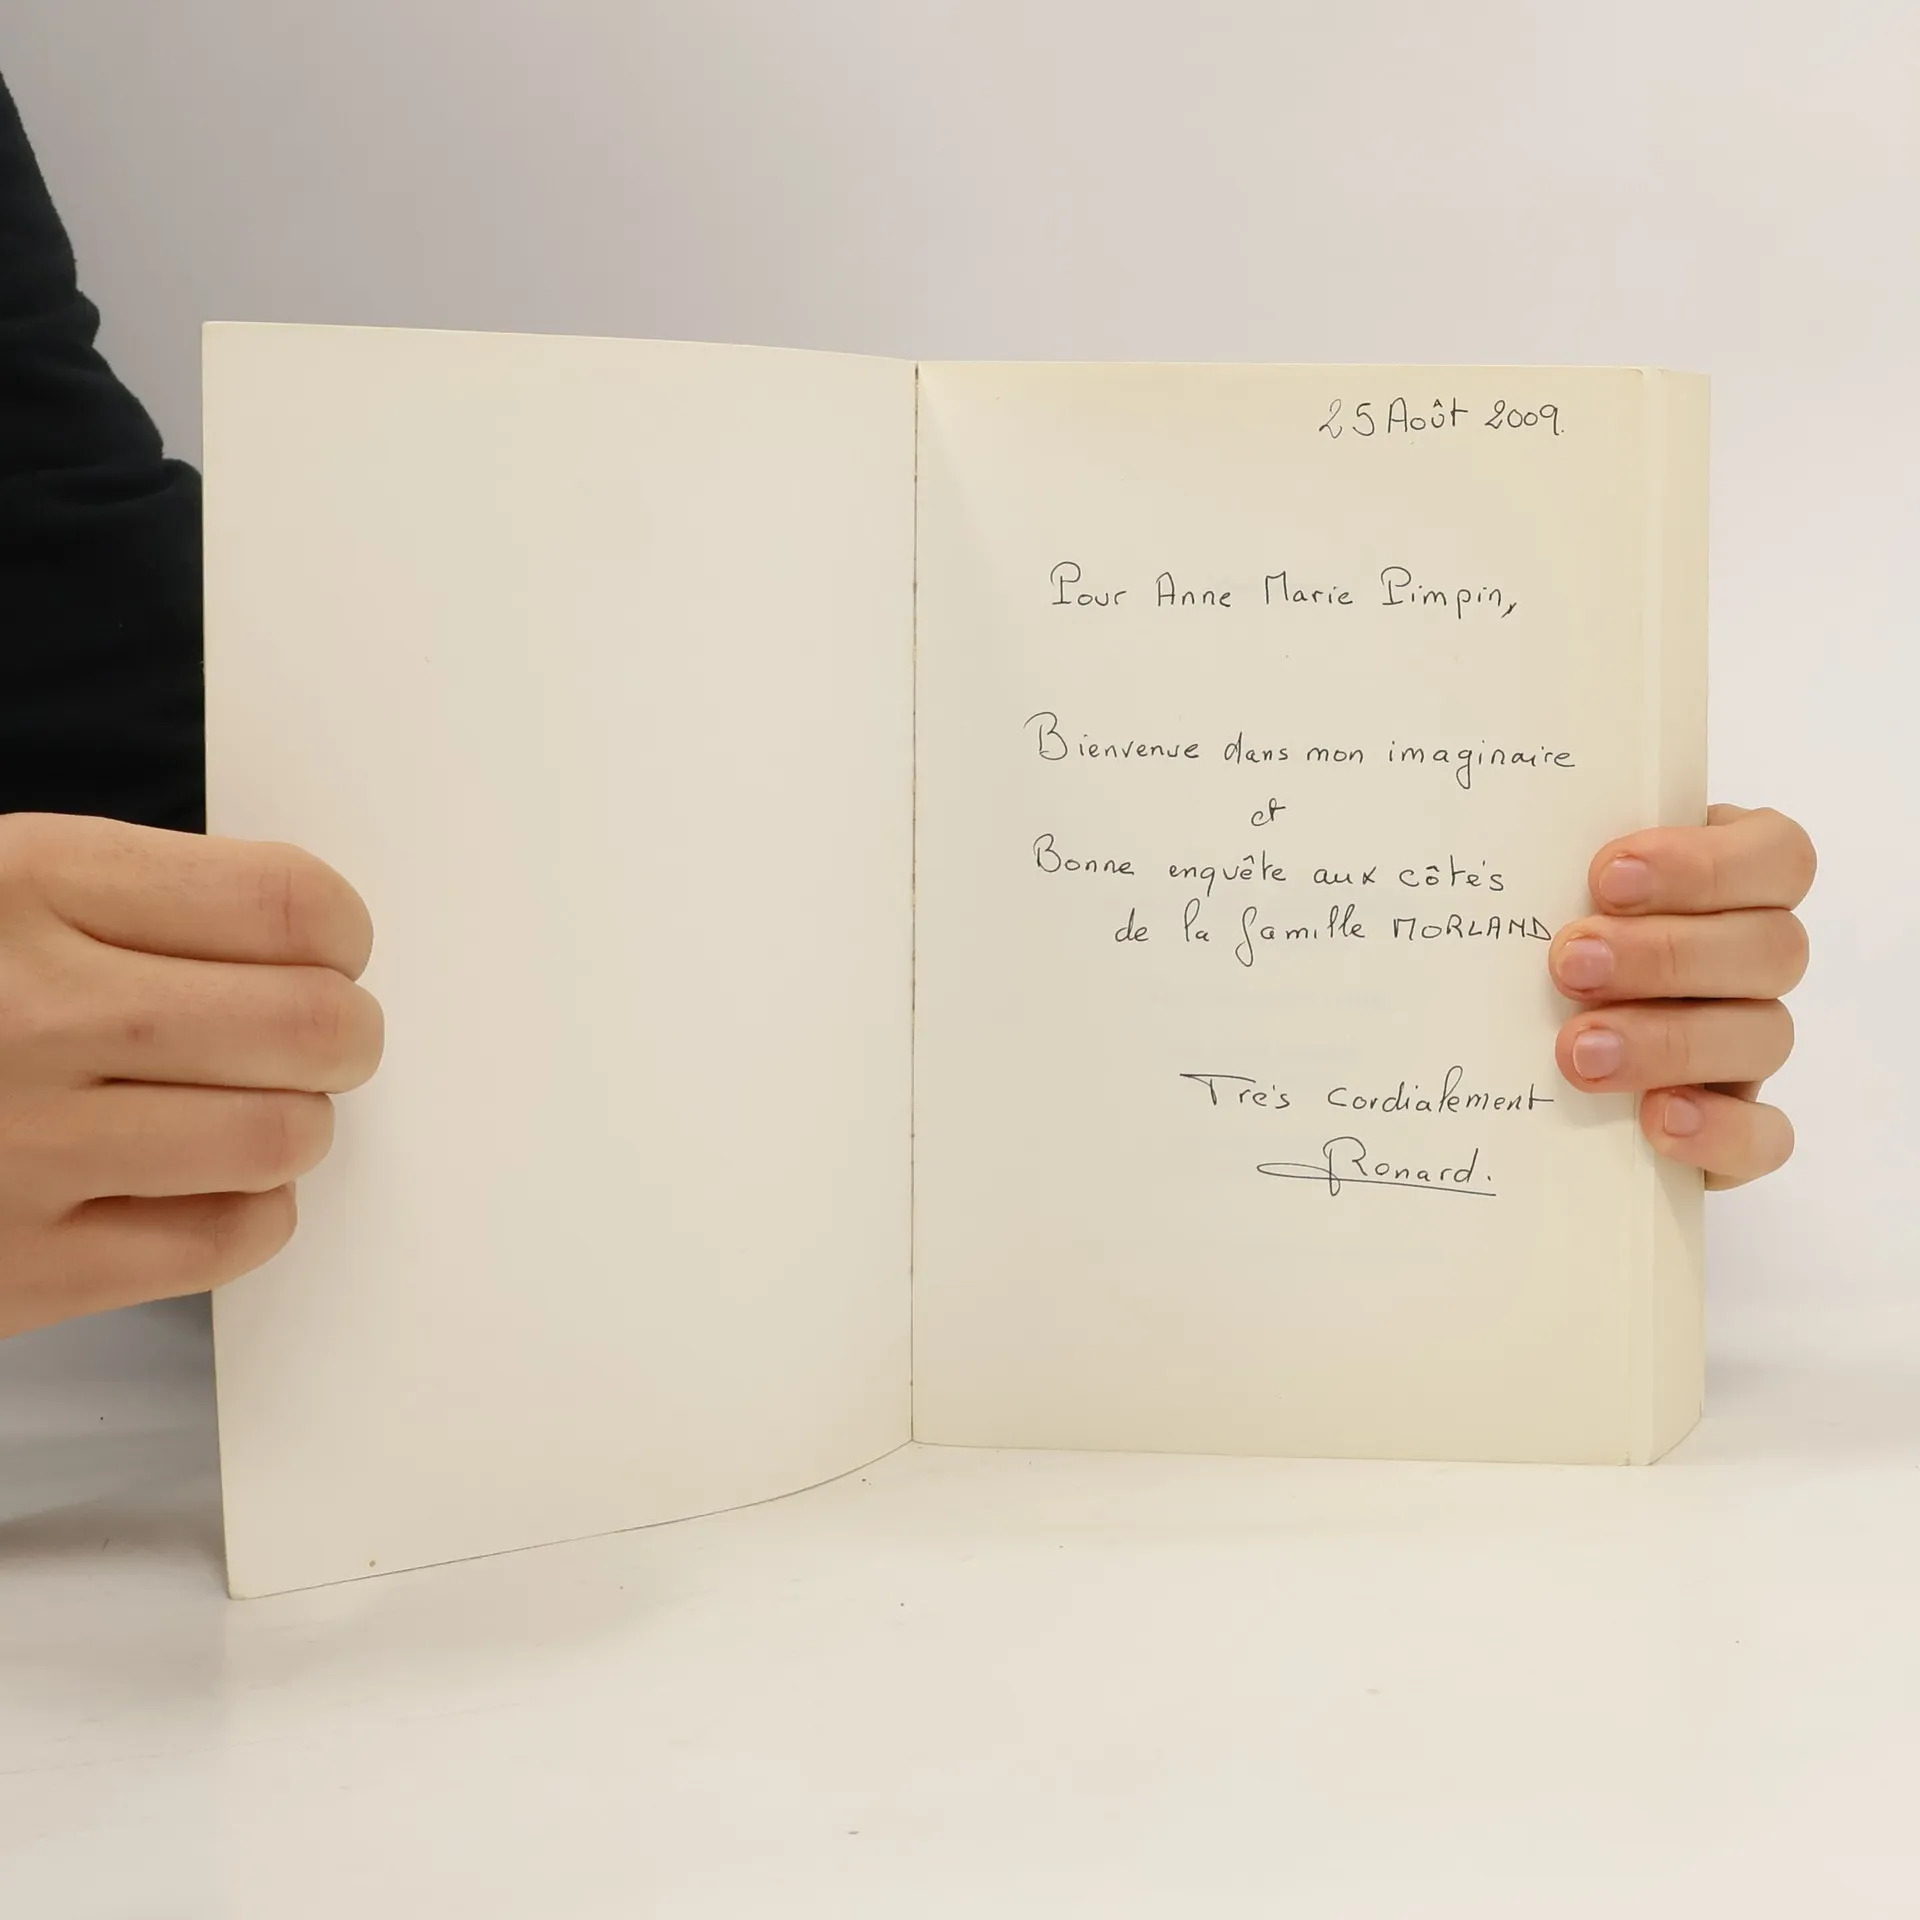 25 Août 2009.
Pour Anne Marie Pimpin,
Bienvenue dans mon imaginaire
et
Bonne enquête aux côtés
de la famille MORLAND
Très cordialement
Ronard.